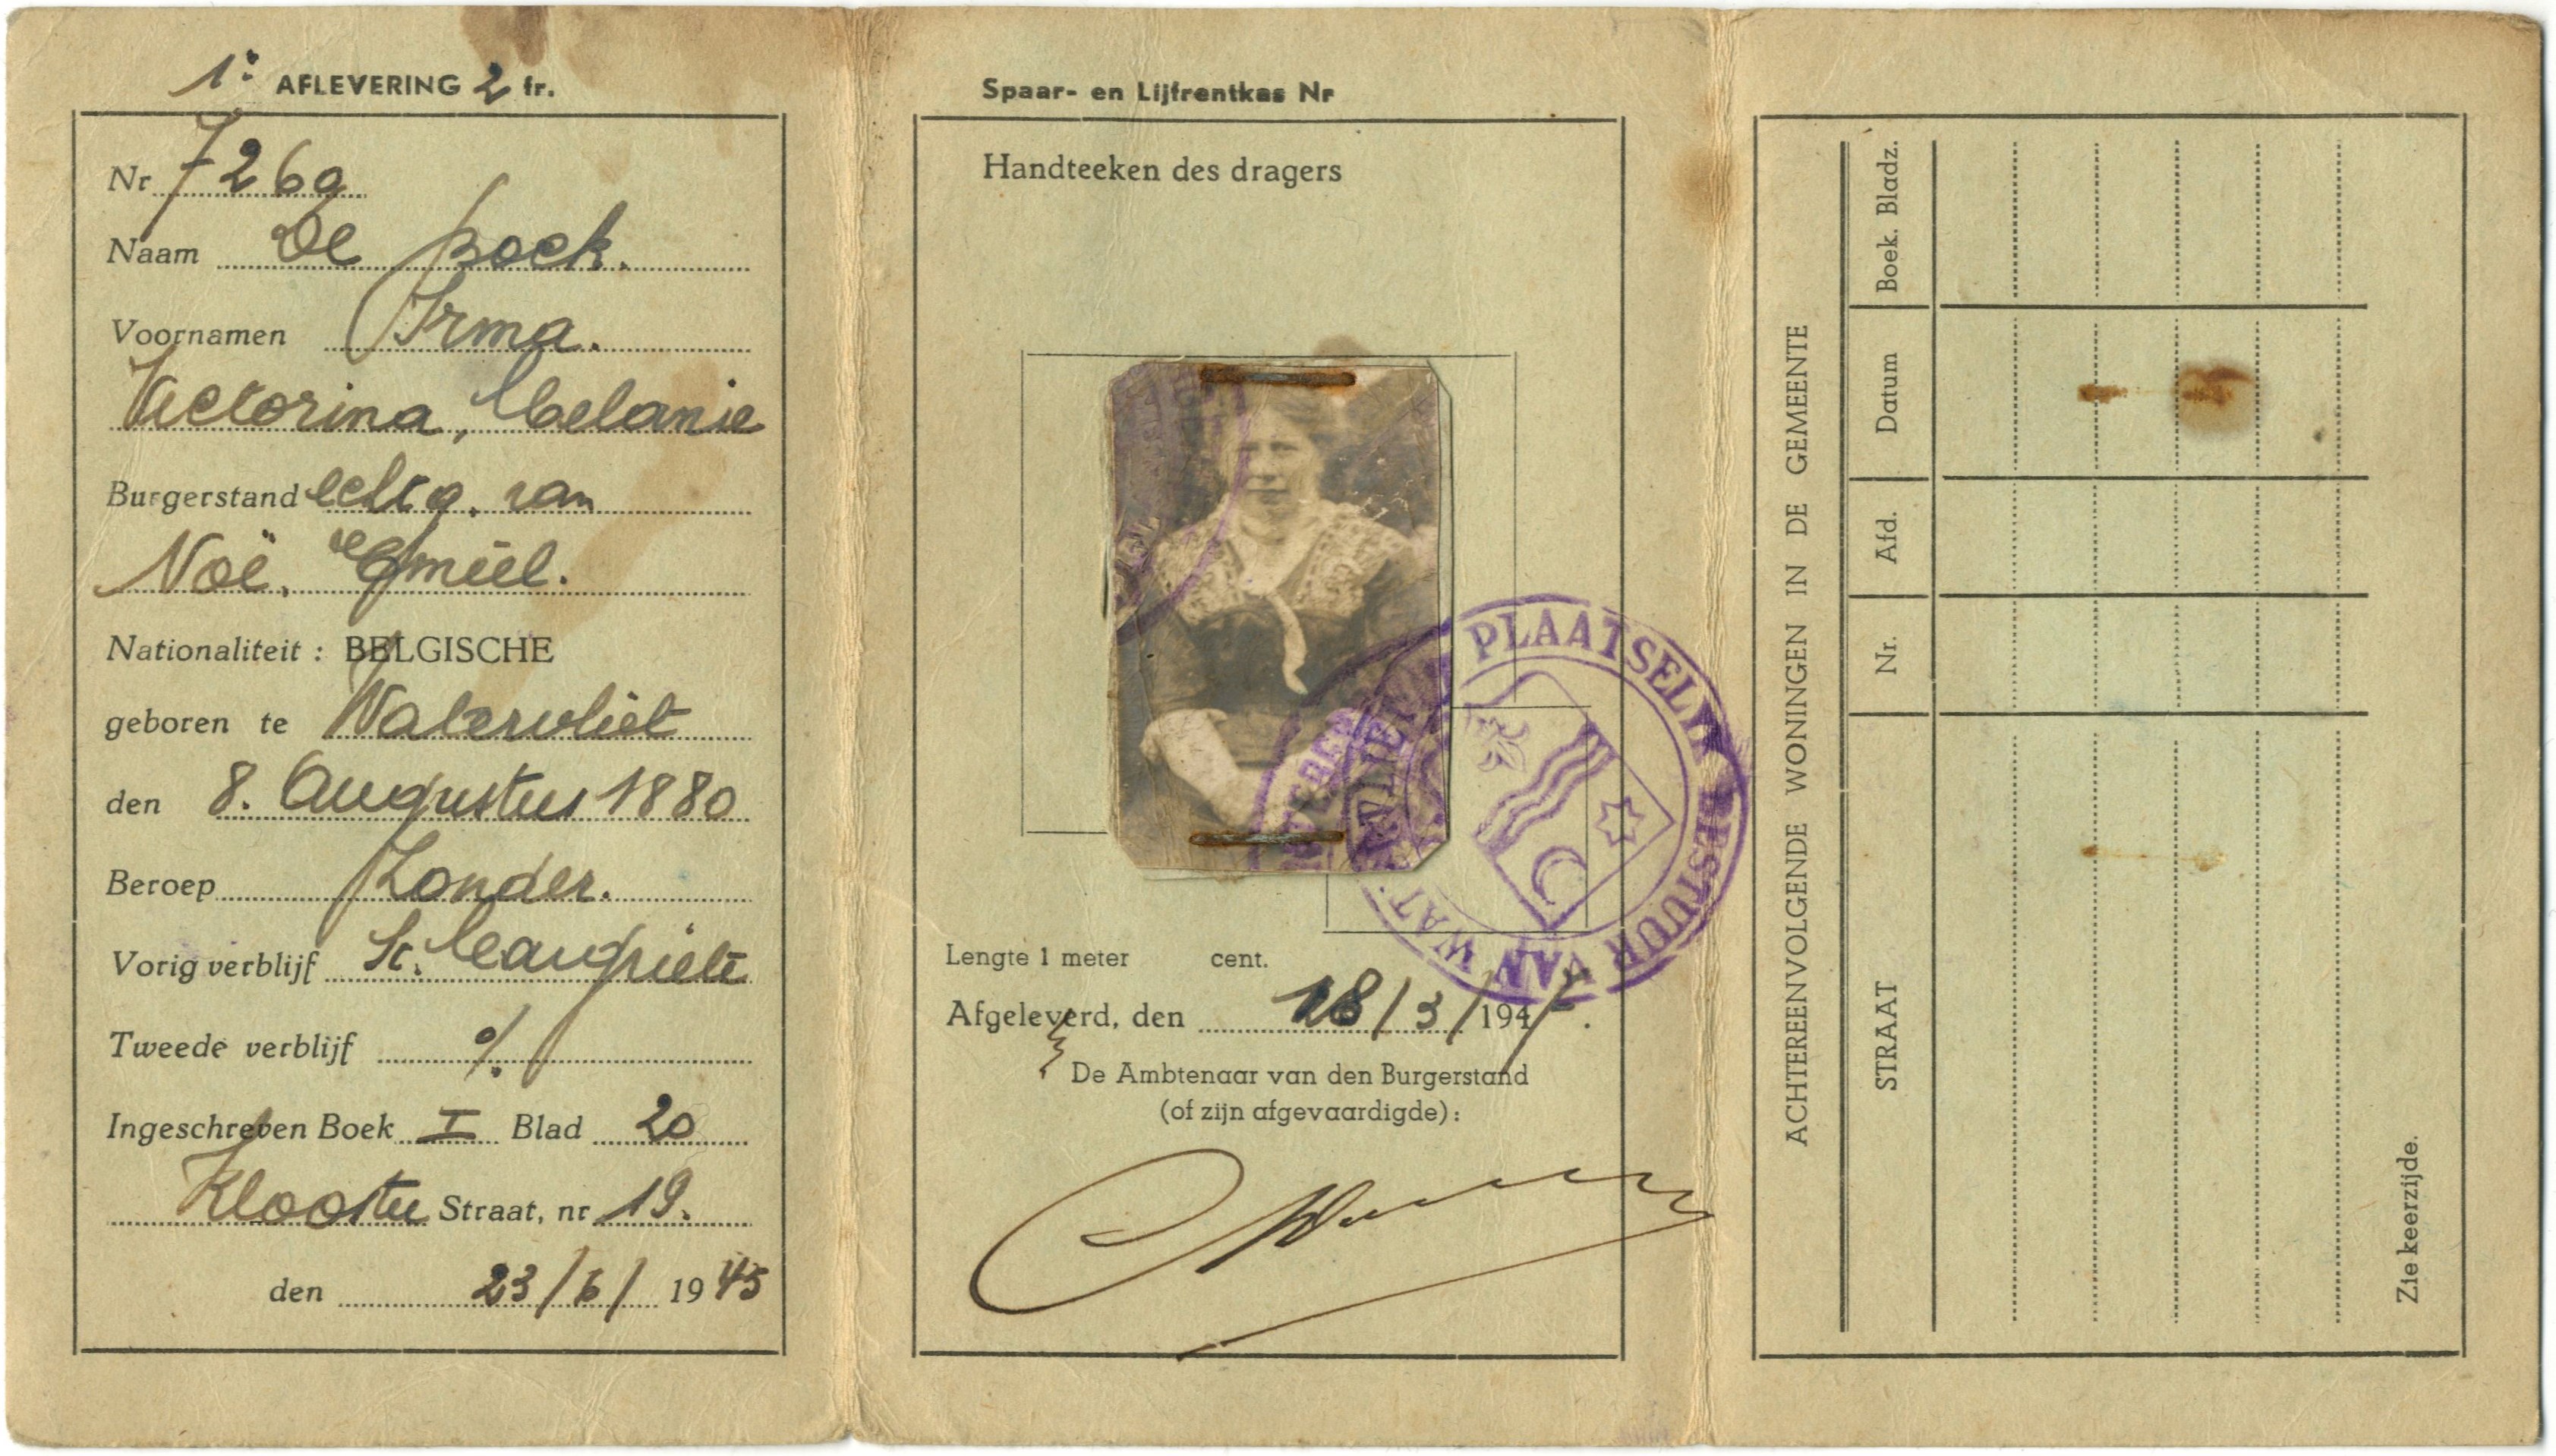 1e AFLEVERING 2 fr.
Nr 7269
Naam De Boek.
Voornamen Irma.
Victorina, Melanie
Burgerstand echtg. van
Noë, Emiel.
Nationaliteit : BELGISCHE
geboren te Watervliet
den 8. Augustus 1880
Beroep Zonder.
Vorig verblijf St. Margriete
Tweede verblijf %.
Ingeschreven Boek I Blad 20
Klooster Straat, nr 19.
den 23/6/ 1945
Spaar- en Lijfrentkas Nr
Handteeken des dragers
PLAATSELIJK BESTUUR VAN WATERVLIET
Lengte 1 meter cent.
Afgeleverd, den 18/3/1947.
De Ambtenaar van den Burgerstand
(of zijn afgevaardigde) :
ACHTEREENVOLGENDE WONINGEN IN DE GEMEENTE
STRAAT Nr. Afd. Datum Boek. Bladz.
Zie keerzijde.